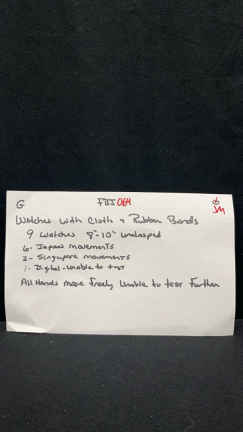 G FJJ 064
JM
Watches with Cloth + Rubber Bands
9 watches 8"-10" unclasped
6- Japan movements
2- Singapore movements
1- Digital - unable to test
All Hands move freely Unable to test Further